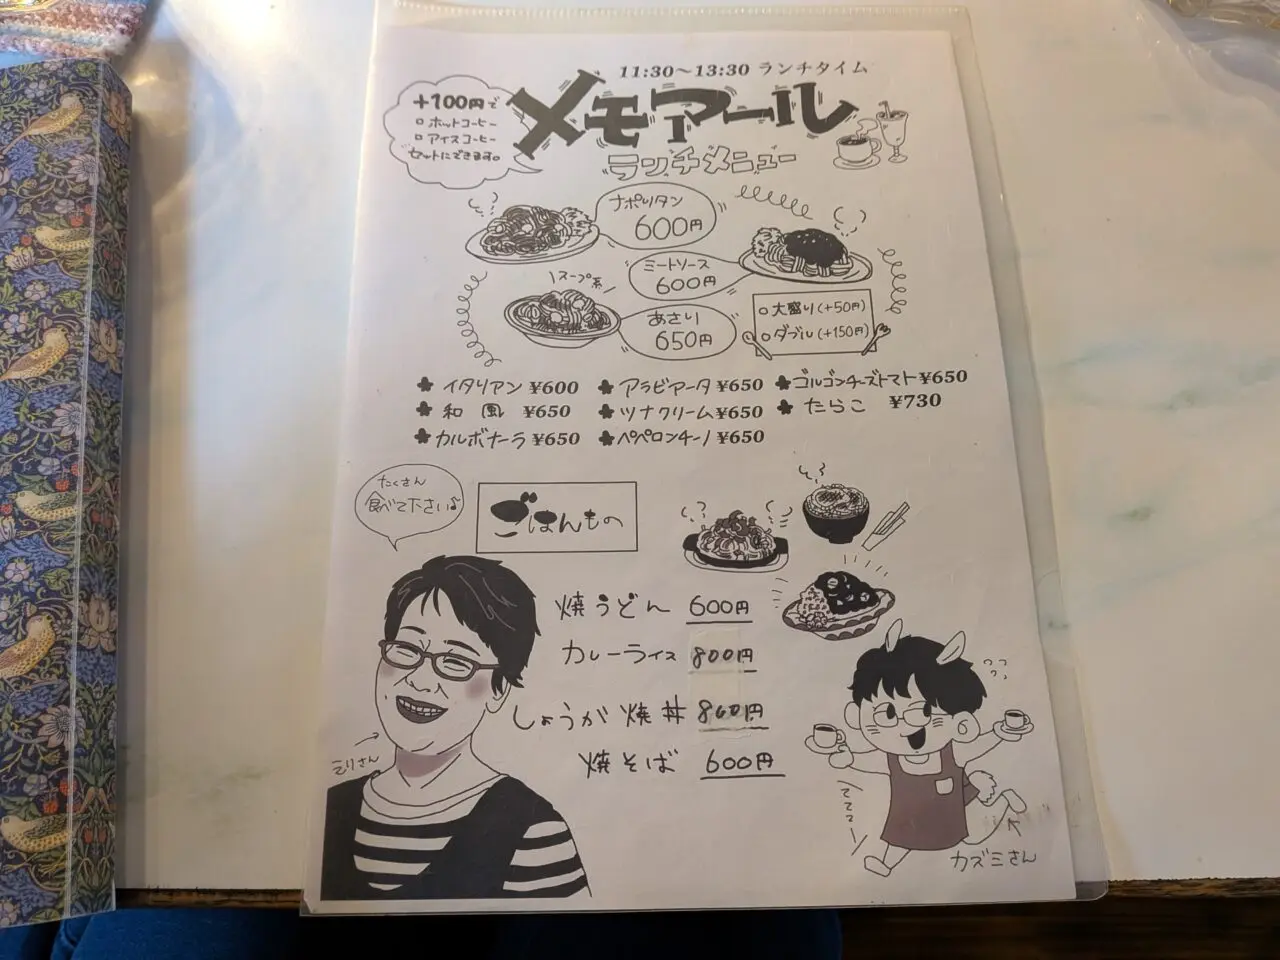 11:30〜13:30 ランチタイム
メモアール
ランチメニュー
+100円で
ホットコーヒー
アイスコーヒー
セットにできます。
ナポリタン
600円
ミートソース
600円
スープ系
あさり
650円
大盛り(+50円)
ダブル(+150円)
イタリアン ¥600
和風 ¥650
カルボナーラ ¥650
アラビアータ ¥650
ツナクリーム ¥650
ペペロンチーノ ¥650
ゴルゴンチーズトマト ¥650
たらこ ¥730
たくさん
食べて下さい♪
ごはんもの
焼うどん 600円
カレーライス 800円
しょうが焼丼 800円
焼そば 600円
えりさん
ててて
カズミさん